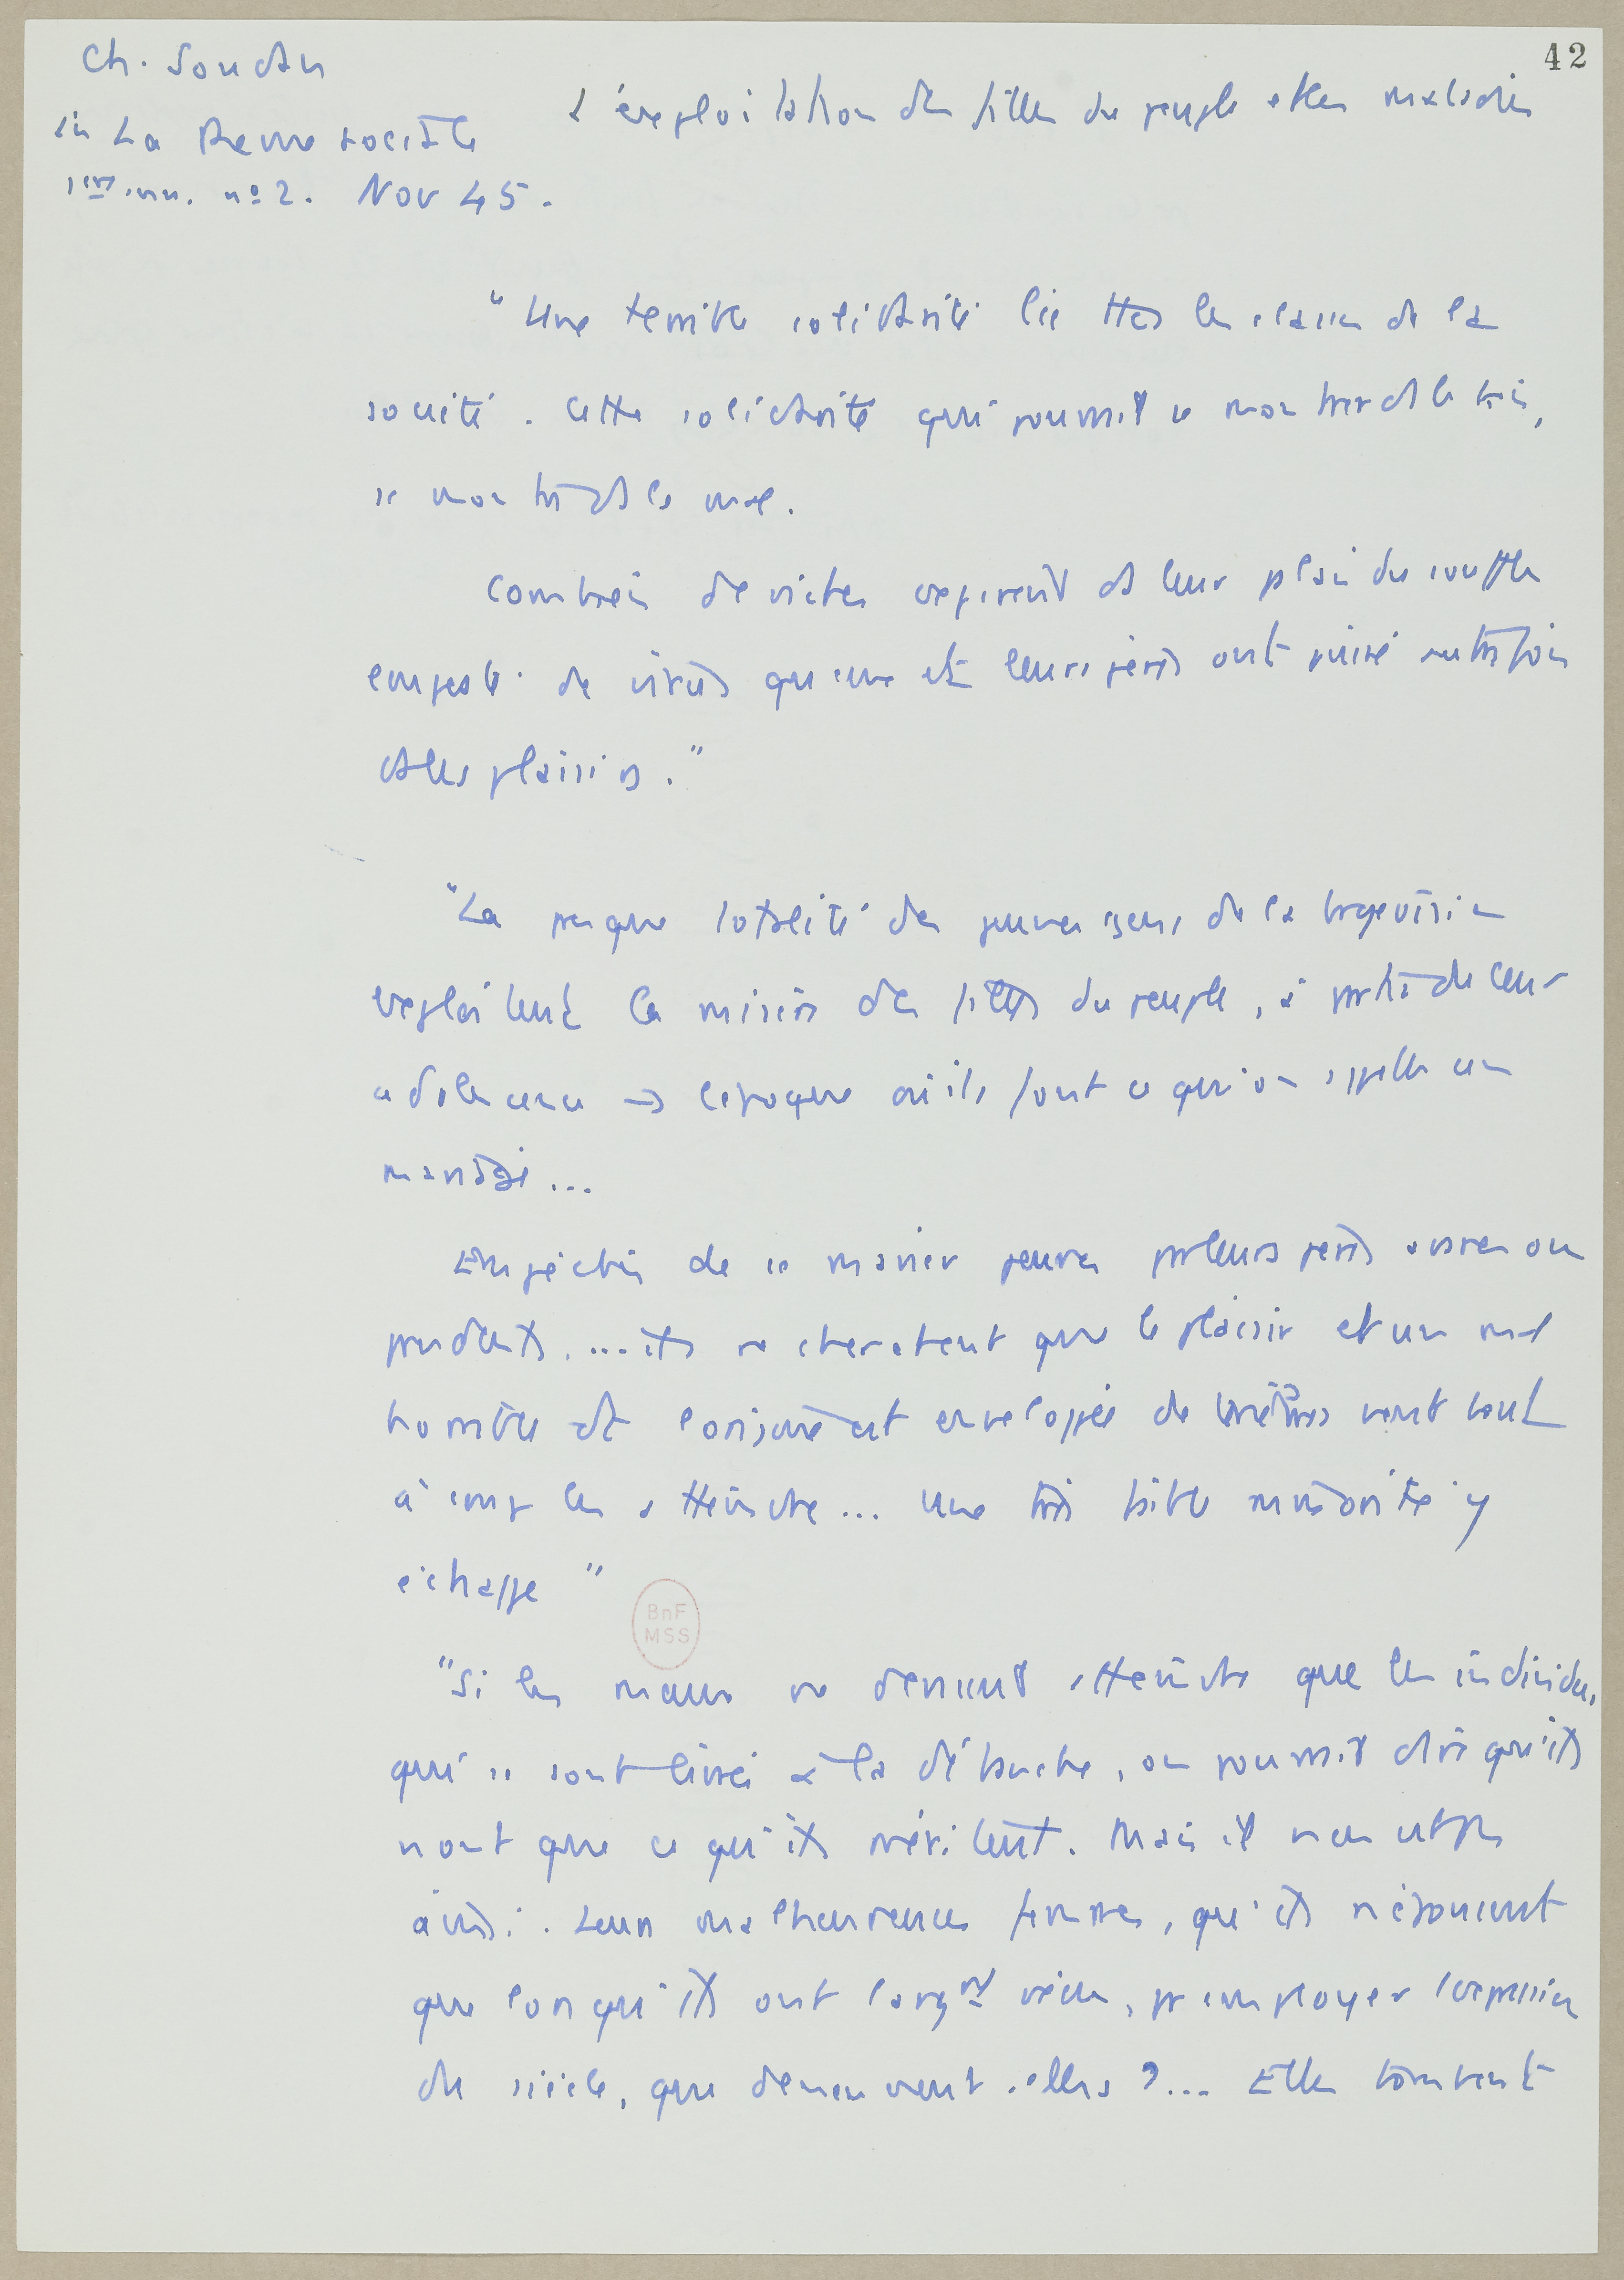 42
Ch. Soudan
L'exploitation des filles du peuple et les maladies
in La Revue sociale
1ère ann. n° 2. Nov 45.
"Une terrible solidarité lie ttes les classes de la
société. Cette solidarité qui pourrait se montrer ds le bien,
se montre ds le mal.
Combien de riches expirent ds leur plein du souffle
empesté de virus qu'eux et leurs pères ont puisé autrefois
ds les plaisirs."
"La presque totalité des jeunes gens de la bourgeoisie
exploitent la misère des filles du peuple, à partir de leur
adolescence → l'époque où ils font ce qu'on appelle un
mariage...
Empêchés de se marier jeunes par leurs pères avares ou
prudents, ... ils ne cherchent que le plaisir et un mal
horrible et longuement enveloppé de vient tout
à coup les atteindre... Une très faible minorité y
échappe"
BnF
MSS
"Si les maux ne devaient atteindre que les individus
qui se sont livrés à la débauche, on pourrait dire qu'ils
n'ont que ce qu'ils méritent. Mais il n'en est pas
ainsi. Leurs malheureuses femmes, qu'ils n'épousent
que lorsqu'ils ont longnt vécu, pr employer l'expression
du siècle, que deviennent-elles ?... Elles tombent